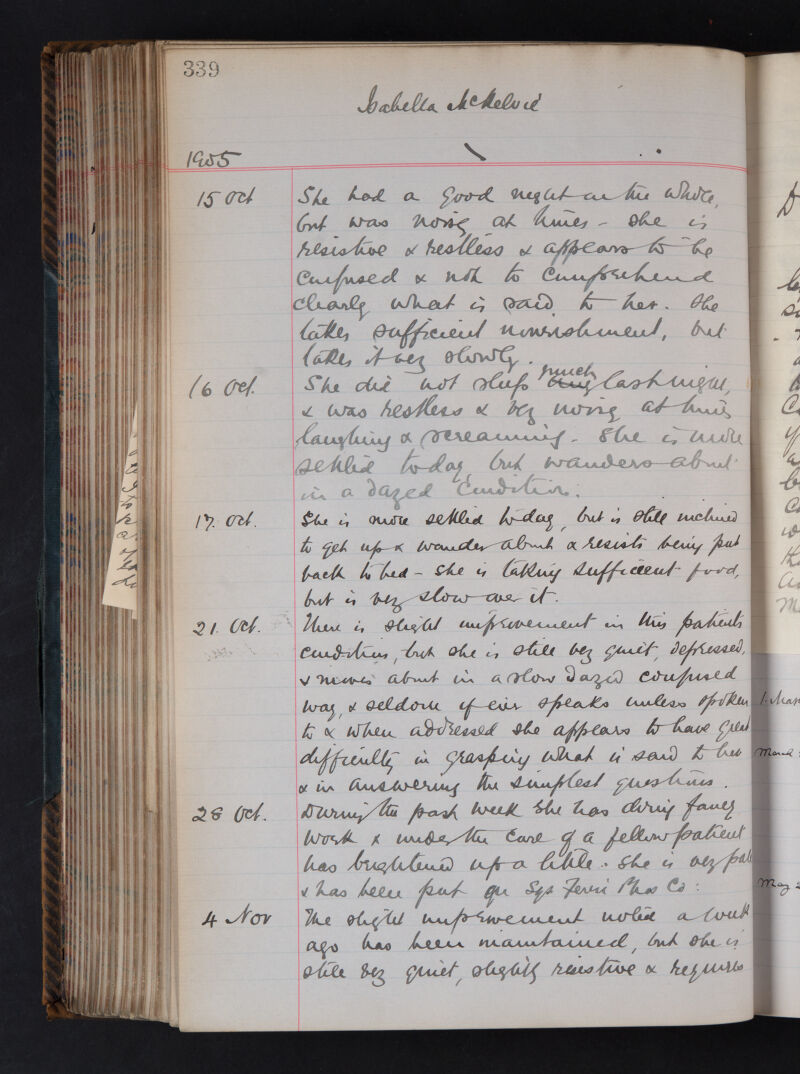 339
Isabella McKelvie
1905
15 Oct She had a good night on the whole,
but was noisy at times - she is
resistive & restless & appears to be
confused & not to comprehend
clearly what is said to her. She
takes sufficient nourishment, but
takes it very slowly.
16 Oct. She did not sleep much last night,
& was restless & very noisy at times
laughing & screaming. She is more
settled today but wanders about
in a dazed condition.
17. Oct. She is more settled today, but is still inclined
to get up & wander about & resists being put
back to bed - She is taking sufficient food,
but is very slow over it.
21. Oct. There is slight improvement in this patients
condition, but she is still very quiet, depressed,
& moves about in a slow dazed confused
way, & seldom if ever speaks unless spoken
to & when addressed she appears to have great
difficulty in grasping what is said to her
& in answering the simplest questions.
28 Oct. During the past week she has doing fancy
work & under the care of a fellow patient
has brightened up a little. She is very pale
& has been put on Syr Ferri Phos Co:
4 Nov The slight improvement noted a week
ago has been maintained, but she is
still very quiet, slightly resistive & requires